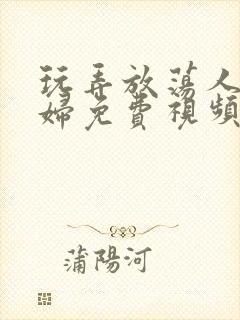 玩弄放荡人
婦免費視頻
蒲陽河